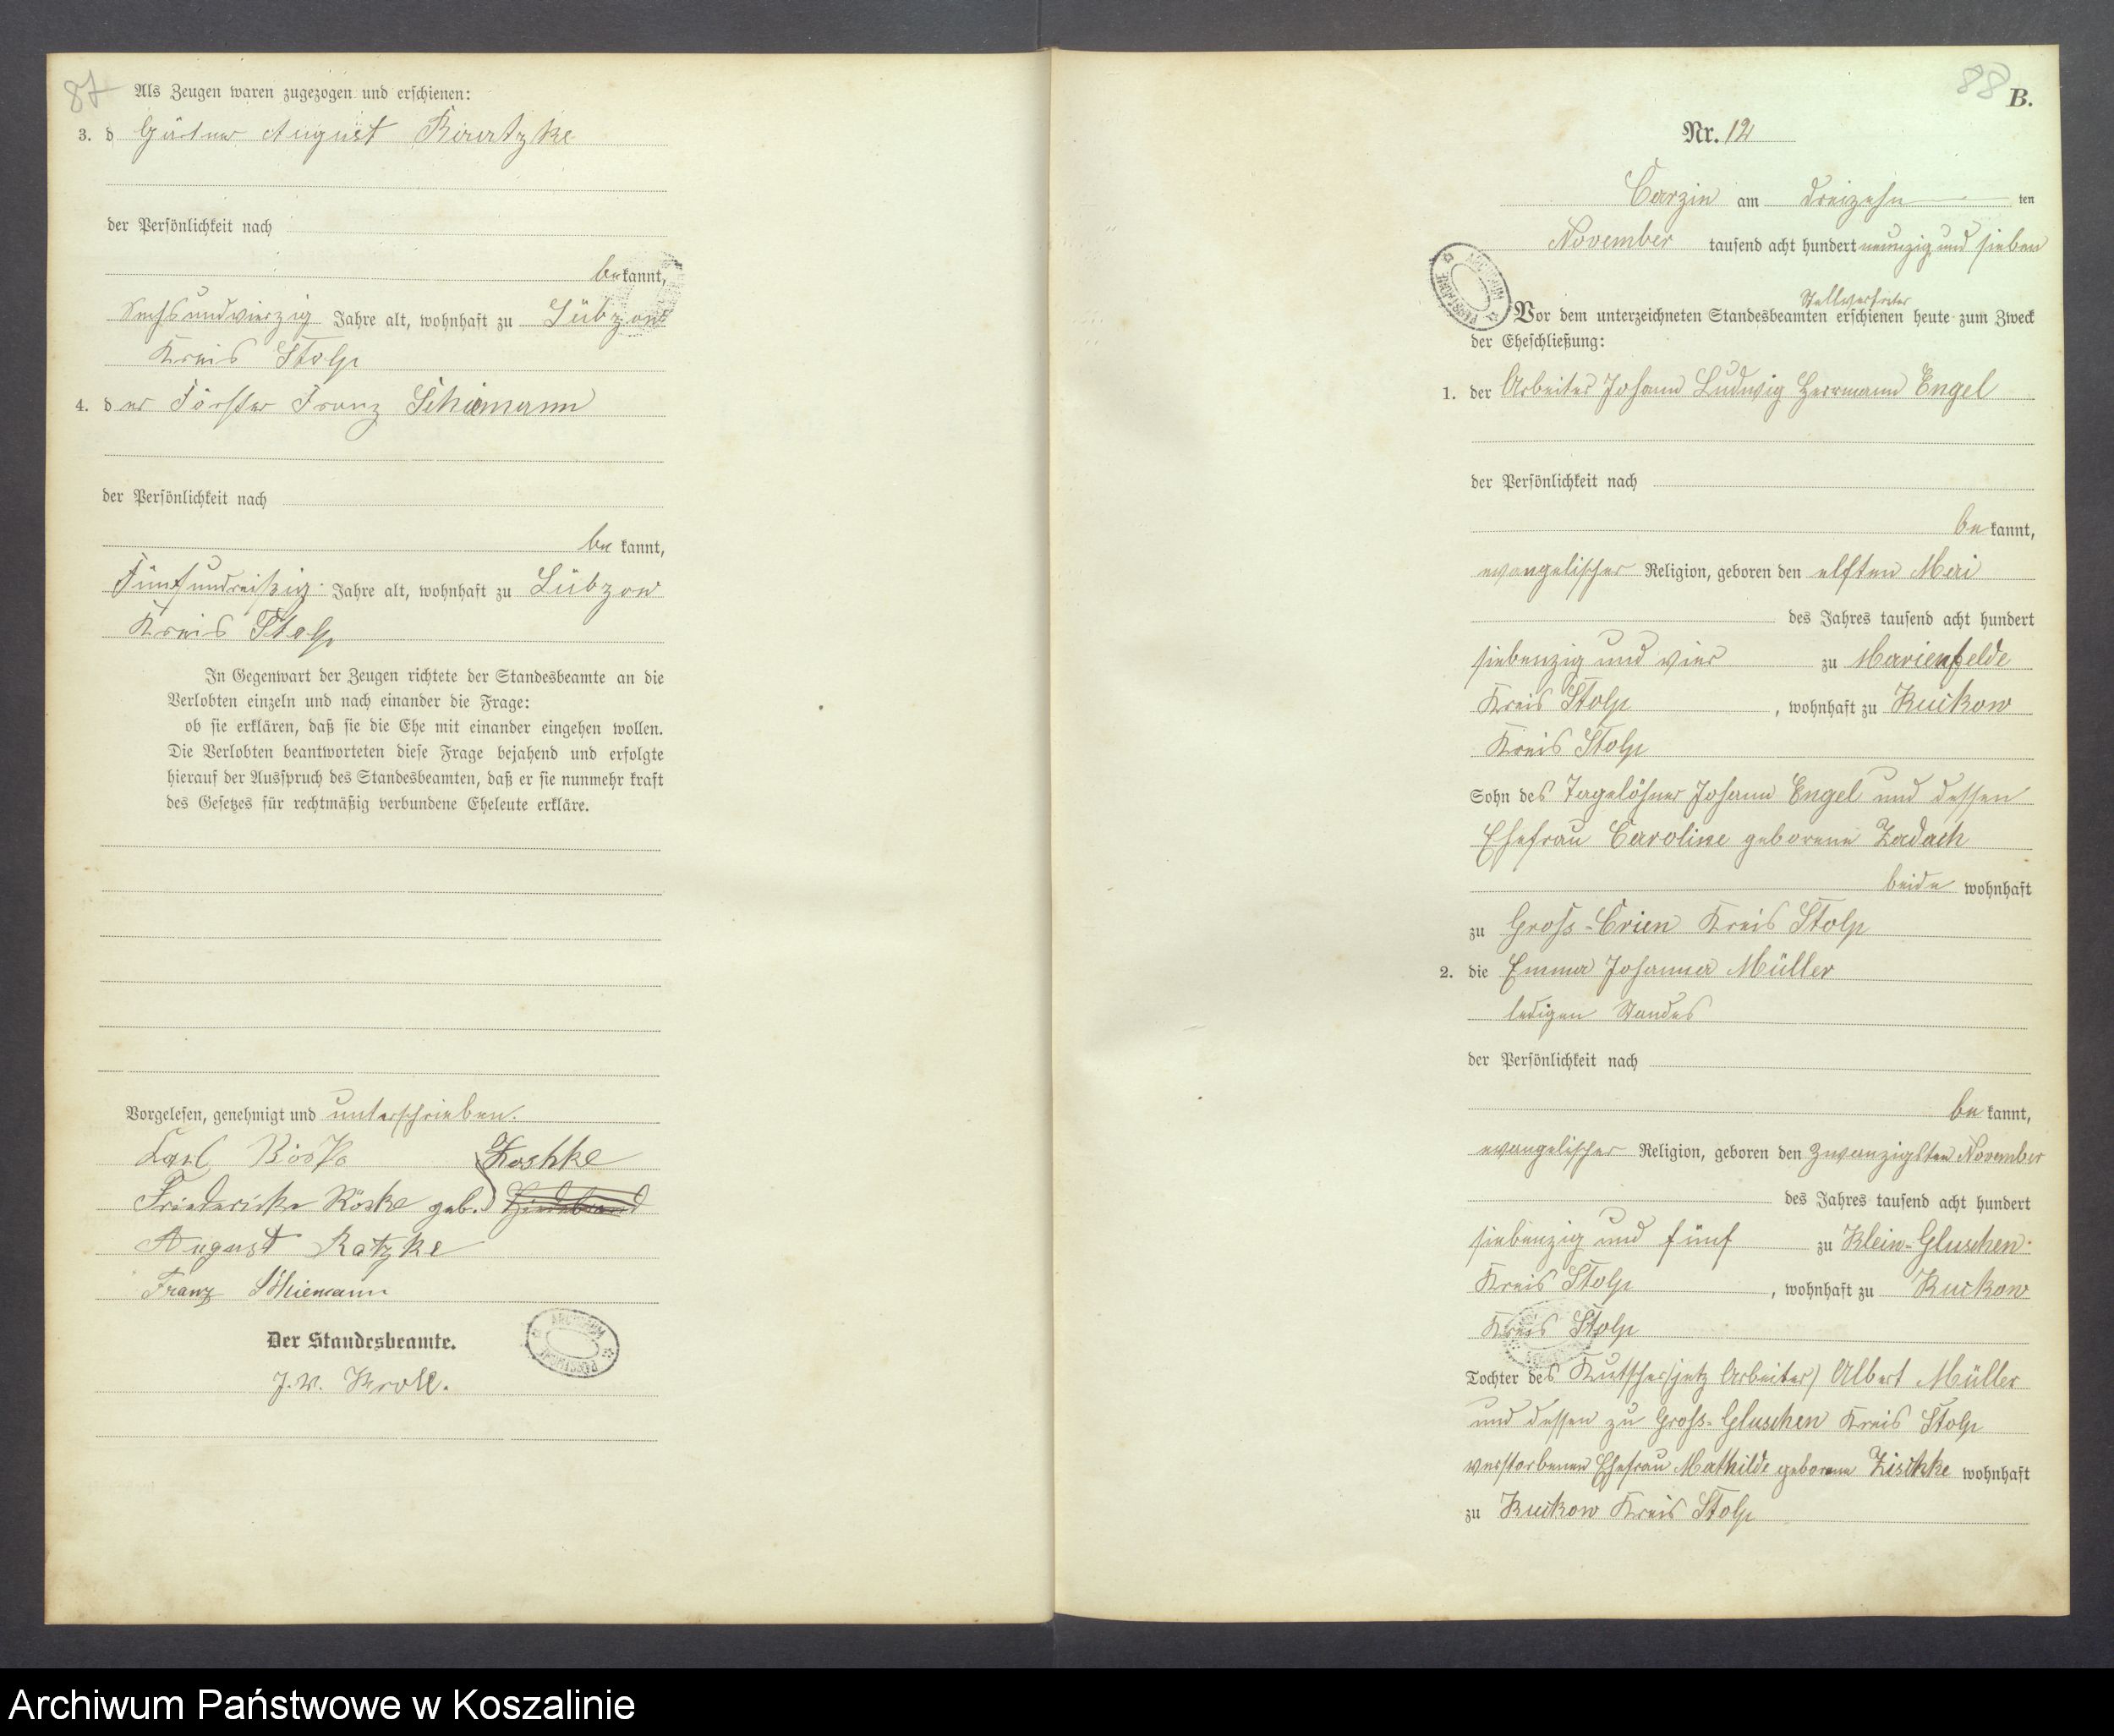 87
Als Zeugen waren zugezogen und erschienen:
3. d Gärtner August Raatzke
der Persönlichkeit nach
bekannt,
Sechsundvierzig Jahre alt, wohnhaft zu Lübzow
Kreis Stolp
4. der Förster Franz Schiemann
der Persönlichkeit nach
be kannt,
Fünfundreißig Jahre alt, wohnhaft zu Lübzow
Kreis Stolp
In Gegenwart der Zeugen richtete der Standesbeamte an die
Verlobten einzeln und nach einander die Frage:
ob sie erklären, daß sie die Ehe mit einander eingehen wollen.
Die Verlobten beantworteten diese Frage bejahend und erfolgte
hierauf der Ausspruch des Standesbeamten, daß er sie nunmehr kraft
des Gesetzes für rechtmäßig verbundene Eheleute erkläre.
Vorgelesen, genehmigt und unterschrieben.
Karl Röske Koshke
Friederike Röske geb.
August Ratzke
Franz Schiemann
Der Standesbeamte.
J. V. Kroll.
88
B.
Nr. 12
Carzin am dreizehn ten
November tausend acht hundert neunzig und sieben
Stellvertreter
Vor dem unterzeichneten Standesbeamten erschienen heute zum Zweck
der Eheschließung:
1. der Arbeiter Johann Ludwig Herrmann Engel
der Persönlichkeit nach
be kannt,
evangelischer Religion, geboren den elften Mai
des Jahres tausend acht hundert
siebenzig und vier zu Marienfelde
Kreis Stolp, wohnhaft zu Kuckow
Kreis Stolp
Sohn des Tagelöhner Johann Engel und dessen
Ehefrau Caroline geborene Zadach
beide wohnhaft
zu Gross-Crien Kreis Stolp
2. die Emma Johanna Müller
ledigen Standes
der Persönlichkeit nach
be kannt,
evangelischer Religion, geboren den zwanzigsten November
des Jahres tausend acht hundert
siebenzig und fünf zu Klein-Gluschen
Kreis Stolp, wohnhaft zu Kuckow
Kreis Stolp
Tochter des Kutscher (jetz Arbeiter) Albert Müller
und dessen zu Gross-Gluschen Kreis Stolp
verstorbenen Ehefrau Mathilde geborene Zischke wohnhaft
zu Kuckow Kreis Stolp
Archiwum Państwowe w Koszalinie